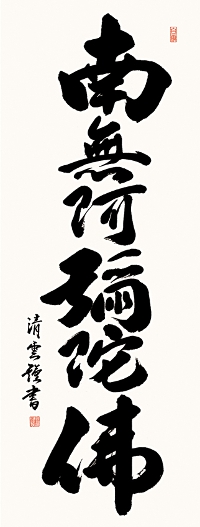 南無阿彌陀佛
清雲穐書